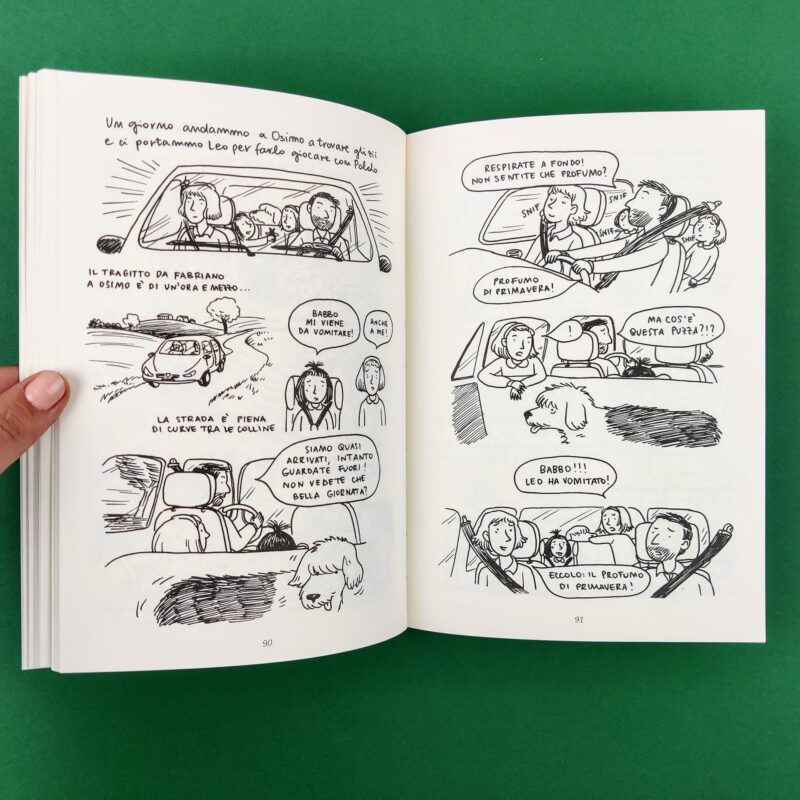 Un giorno andammo a Osimo a trovare gli zii
e ci portammo Leo per farlo giocare con Pololo
IL TRAGITTO DA FABRIANO
A OSIMO È DI UN'ORA E MEZZO...
BABBO
MI VIENE
DA VOMITARE!
ANCHE
A ME!
LA STRADA E' PIENA
DI CURVE TRA LE COLLINE
SIAMO QUASI
ARRIVATI, INTANTO
GUARDATE FUORI!
NON VEDETE CHE
BELLA GIORNATA?
90
RESPIRATE A FONDO!
NON SENTITE CHE PROFUMO?
SNIF
SNIF
SNIF
SNIF
PROFUMO
DI PRIMAVERA!
!
MA COS'E'
QUESTA PUZZA?!?
BABBO!!!
LEO HA VOMITATO!
ECCOLO: IL PROFUMO
DI PRIMAVERA!
91